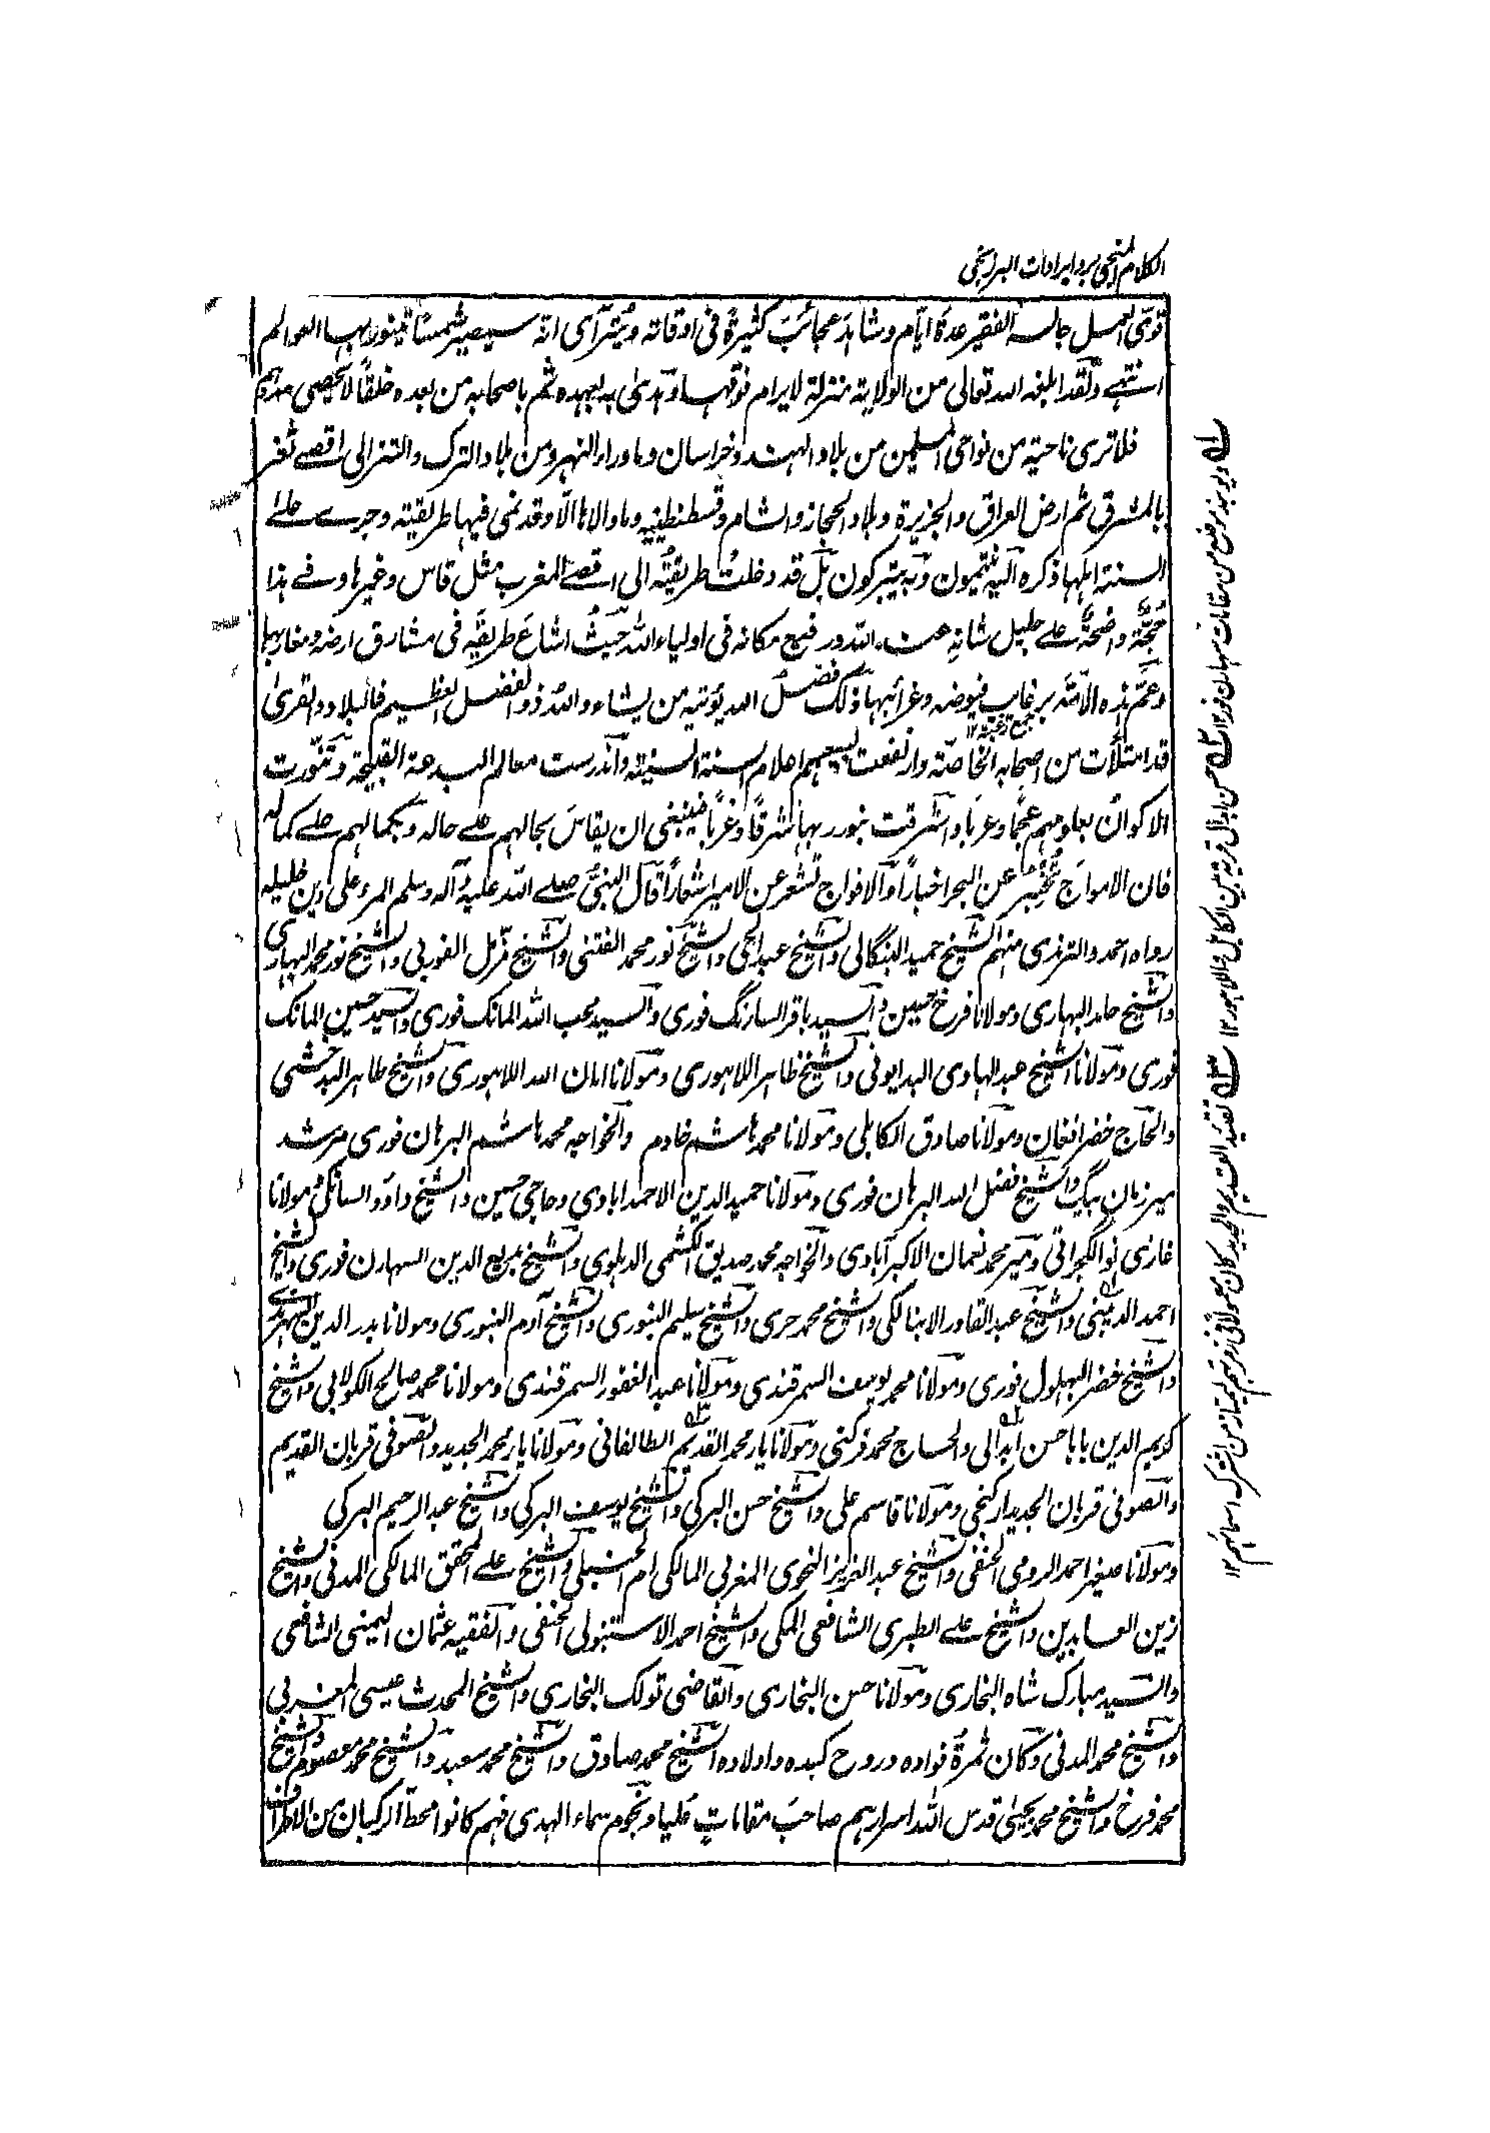 الكلام المنجى برد ايرادات البرزنجى
قوى العمل جالسه الفقير عدة ايام وشاهد عجائب كثيرة فى اوقاته ويترآى انه سيصير شمسا تتنور بها العوالم
انتهى ولقد ابلغه الله تعالى من الولاية منزلة لا يرام فوقها وهدى به بعهده ثم باصحابه من بعده خلقا لا يحصى عددهم
فلا ترى ناحية من نواحى المسلمين من بلاد الهند وخراسان وماوراء النهر ومن بلاد الترك والتتر الى اقصى ثغر
بالمشرق ثم ارض العراق والجزيرة وبلاد الحجاز والشام وقسطنطنية وما والاها الا وقد نمى فيها طريقته وجرى على
السنة اهلها ذكره اليه ينتمون وبه يتبركون بل قد دخلت طريقته الى اقصى المغرب مثل فاس وغيرها وفى هذا
حجة واضحة على جليل شانه عند الله ورفيع مكانه فى اولياء الله حيث اشاع طريقه فى مشارق ارضه ومغاربها
وعم هذه الامة برغائب فيوضه وغرائبها ذلك فضل الله يؤتيه من يشاء والله ذو الفضل العظيم فالبلاد والقرى
قد امتلأت من اصحابه الخاصة وارتفعت بسعيهم اعلام السنة السنية واندرست معالم البدعة القبيحة وتنورت
الاكوان بعلومهم عجما وعربا واشرقت بنور ربها شرقا وغربا فينبغى ان يقاس بحالهم على حاله وبكمالهم على كماله
فان الامواج تخبر عن البحر اخبارا والافواج تشعر عن الامير اشعارا قال النبى صلى الله عليه وآله وسلم المرء على دين خليله
رواه احمد والترمذى منهم الشيخ حميد البنگالى والشيخ عبد الحى والشيخ نور محمد الفتنى والشيخ مزمل الفوربى والشيخ نور محمد البهارى
والشيخ حامد البهارى ومولانا فرخ حسين والسيد باقر السارنگ فورى والسيد محب الله المانك فورى والسيد حسين المانك
فورى ومولانا الشيخ عبد الهادى البدايونى والشيخ طاهر اللاهورى ومولانا امان الله اللاهورى والشيخ طاهر البدخشى
والحاج خضر افغان ومولانا صادق الكابلى ومولانا محمد هاشم خادم والخواجه محمد هاشم البرهان فورى مرشد
ميرزمان بيگ والشيخ فضل الله البرهان فورى ومولانا حميد الدين الاحمدابادى وحاجى حسين والشيخ داود السانكى ومولانا
غازى نو الگجراتى ومير محمد نعمان الاكبرآبادى والخواجه محمد صديق الكشمى الدهلوى والشيخ بديع الدين السهارن فورى والشيخ
احمد الديبنى والشيخ عبد القادر الانبالكى والشيخ محمد حرى والشيخ سليم البنورى والشيخ آدم البنورى ومولانا بدر الدين السهرندى
والشيخ خضر البهلول فورى ومولانا محمد يوسف السمرقندى ومولانا عبد الغفور السمرقندى ومولانا محمد صالح الكولابى والشيخ
كريم الدين بابا حسن ابدالى والحاج محمد فركتى ومولانا يار محمد القديم الطالقانى ومولانا يار محمد الجديد والصوفى قربان القديم
والصوفى قربان الجديد اركنجى ومولانا قاسم على والشيخ حسن البركى والشيخ يوسف البركى والشيخ عبد الرحيم البركى
ومولانا صغير احمد الرومى الحنفى والشيخ عبد العزيز النحوى المغربى المالكى ام الحنبلى والشيخ على المحقق المالكى المدنى والشيخ
زين العابدين والشيخ على الطبرى الشافعى المكى والشيخ احمد الاستنبولى الحنفى والفقيه عثمان اليمنى الشافعى
والسيد مبارك شاه البخارى ومولانا حسن البخارى والقاضى تولك البخارى والشيخ المحدث عيسى المغربى
والشيخ محمد المدنى وكان ثمرة فواده وروح كبده واولاده الشيخ محمد صادق والشيخ محمد سعيد والشيخ محمد معصوم والشيخ
محمد فرخ والشيخ محمد يحيى قدس الله اسرارهم صاحب مقامات عليا ونجوم سماء الهدى فهم كانوا محط الركبان من الاطراف